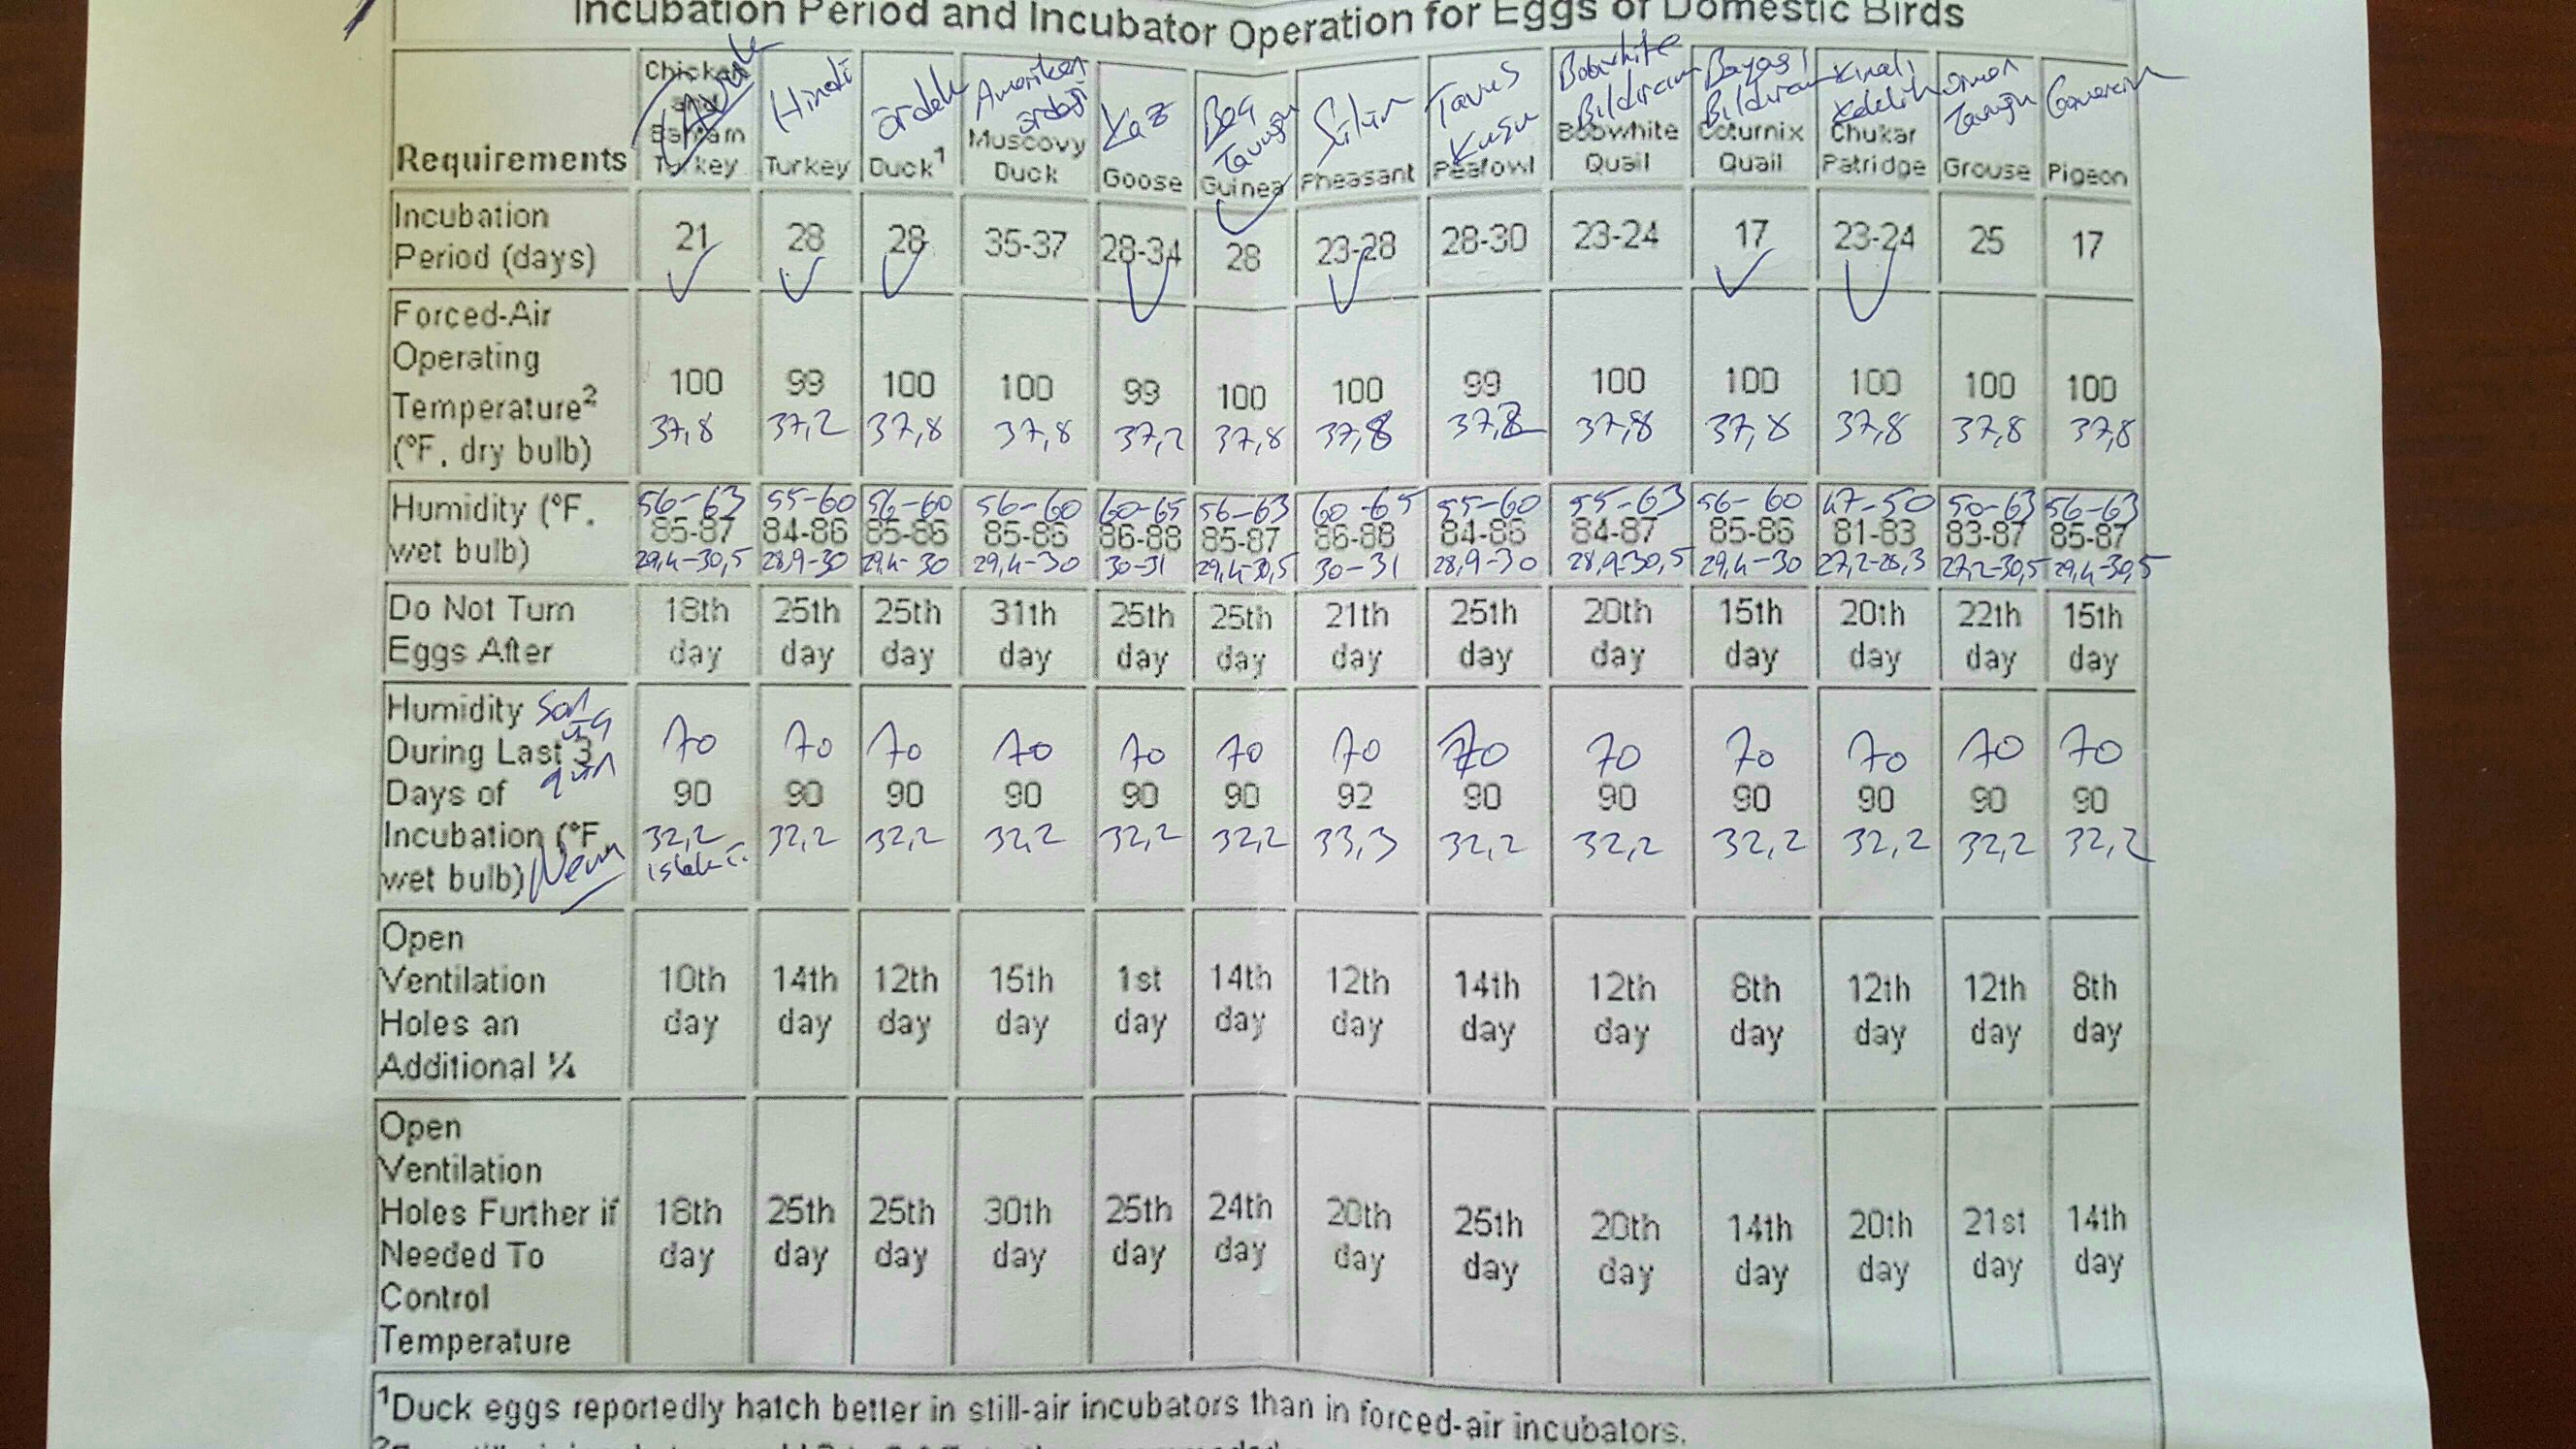 Incubation Period and Incubator Operation for Eggs of Domestic Birds
Requirements
Chicken
Bantam
Turkey
Hindi
Turkey
ördek
Duck¹
Amerikan
ördeği
Muscovy
Duck
Kaz
Goose
Beç
Tavuğu
Guinea
Sülün
Pheasant
Tavus
Kuşu
Peafowl
Bobwhite
Bıldırcın
Bobwhite
Quail
Bayağı
Bıldırcın
Coturnix
Quail
Kınalı
Keklik
Chukar
Patridge
Orman
Tavuğu
Grouse
Güvercin
Pigeon
Incubation
Period (days)
21 28 28 35-37 28-34 28 23-28 28-30 23-24 17 23-24 25 17
Forced-Air
Operating
Temperature²
(°F, dry bulb)
100 99 100 100 99 100 100 99 100 100 100 100 100
37,8 37,2 37,8 37,8 37,2 37,8 37,8 37,2 37,8 37,8 37,8 37,8 37,8
Humidity (°F,
wet bulb)
56-63 55-60 56-60 56-60 60-65 56-63 60-65 55-60 55-63 56-60 47-50 50-63 56-63
85-87 84-86 85-86 85-86 86-88 85-87 86-88 84-86 84-87 85-86 81-83 83-87 85-87
29,4-30,5 28,9-30 29,4-30 29,4-30 30-31 29,4-30,5 30-31 28,9-30 28,9-30,5 29,4-30 27,2-28,3 27,2-30,5 29,4-30,5
Do Not Turn
Eggs After
18th 25th 25th 31th 25th 25th 21th 25th 20th 15th 20th 22th 15th
day day day day day day day day day day day day day
Humidity Son
During Last 3
gün
Days of
Incubation (°F
wet bulb) Nem
70 70 70 70 70 70 70 70 70 70 70 70 70
90 90 90 90 90 90 92 90 90 90 90 90 90
32,2 32,2 32,2 32,2 32,2 32,2 33,3 32,2 32,2 32,2 32,2 32,2 32,2
Open
Ventilation
Holes an
Additional ¼
10th 14th 12th 15th 1st 14th 12th 14th 12th 8th 12th 12th 8th
day day day day day day day day day day day day day
Open
Ventilation
Holes Further if
Needed To
Control
Temperature
18th 25th 25th 30th 25th 24th 20th 25th 20th 14th 20th 21st 14th
day day day day day day day day day day day day day
¹Duck eggs reportedly hatch better in still-air incubators than in forced-air incubators.